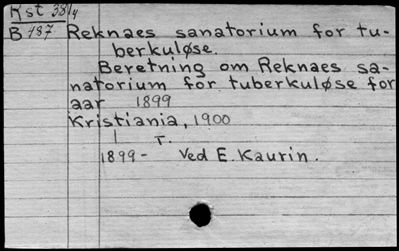 Kst 38/4
B 487 Reknaes sanatorium for tu-
berkuløse.
Beretning om Reknaes sa-
natorium for tuberkuløse for
aar 1899
Kristiania, 1900
1 T.
1899- Ved E. Kaurin.